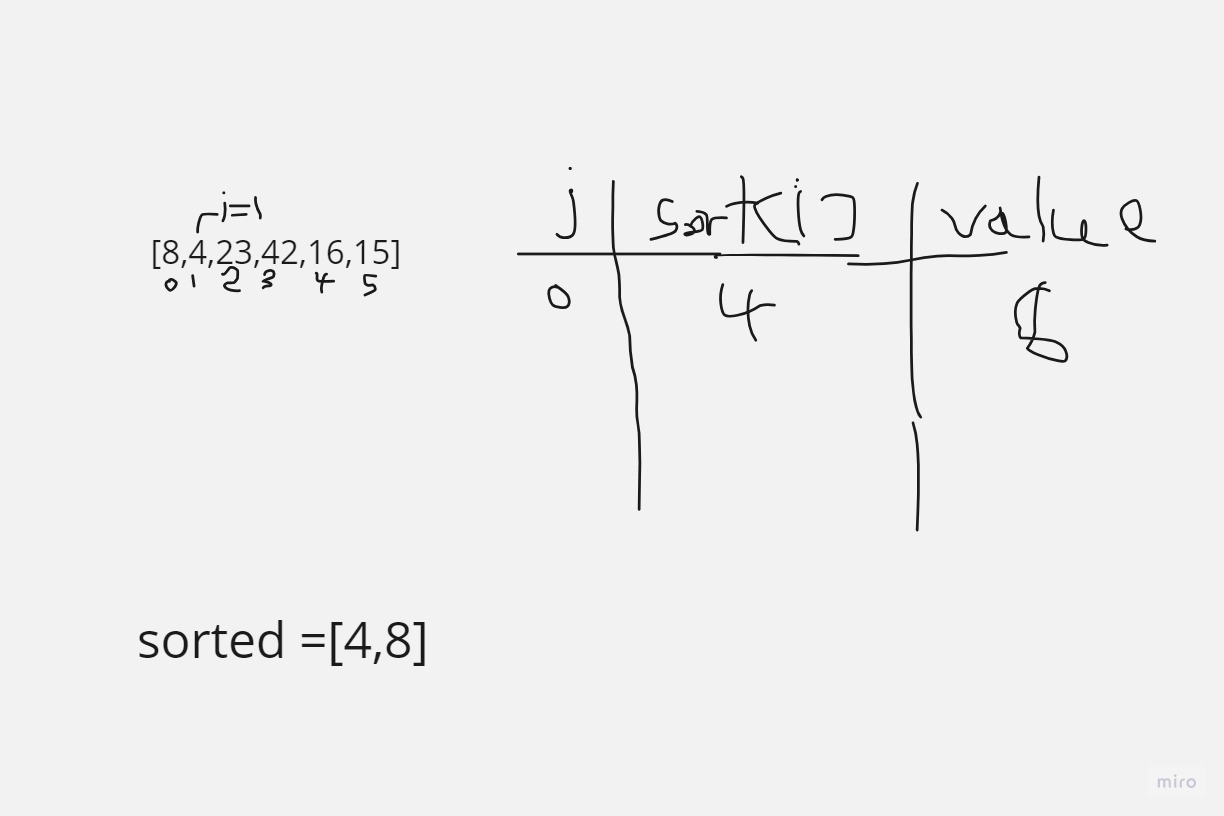 i=1
[8,4,23,42,16,15]
0 1 2 3 4 5
j sort[i] value
0 4 8
sorted =[4,8]
miro